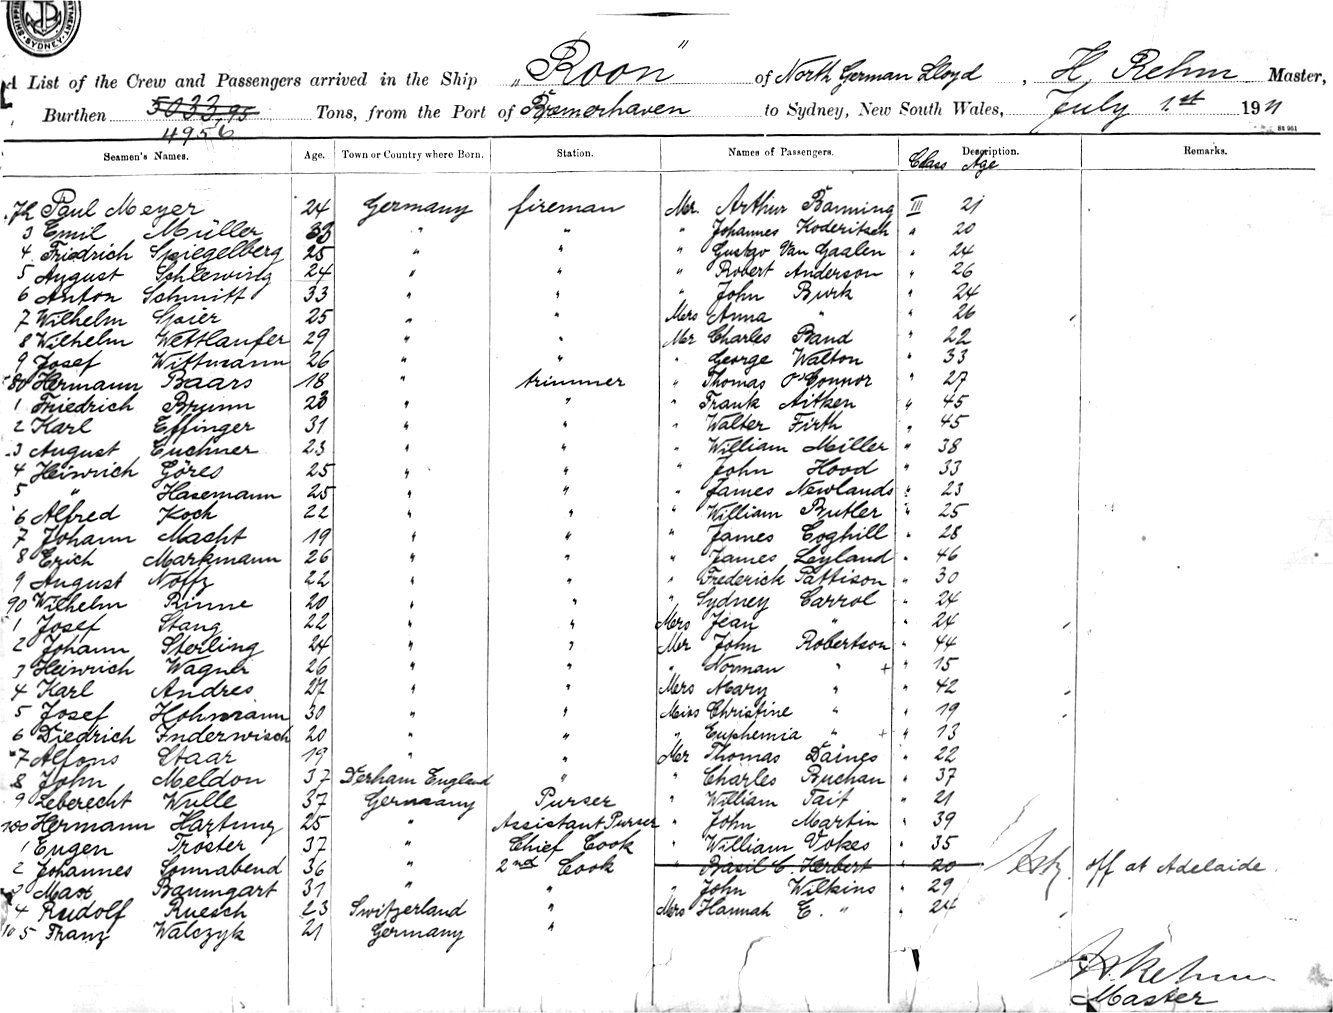 SHIPPING DEPARTMENT. SYDNEY.
A List of the Crew and Passengers arrived in the Ship "Roon" of North German Lloyd, H. Rehm Master,
Burthen 5033,95 Tons, from the Port of Bremerhaven to Sydney, New South Wales, July 1st 1911
4956
St 961
Seamen's Names. Age. Town or Country where Born. Station. Names of Passengers. Class Description. Age Remarks.
72 Paul Meyer 24 Germany fireman Mr. Arthur Banning III 21
3 Emil Müller 33 " " " Johannes Koderitsch " 20
4 Friedrich Spiegelberg 25 " " " Gustav Van Gaalen " 24
5 August Schlewing 24 " " " Robert Anderson " 26
6 Anton Schmitt 33 " " " John Burk " 24
7 Wilhelm Speier 25 " " Mrs Anna " " 26
8 Wilhelm Wettlaufer 29 " " Mr Charles Band " 22
9 Josef Wittmann 26 " " " George Walton " 33
80 Hermann Baars 18 " trimmer " Thomas O'Connor " 27
1 Friedrich Brunn 23 " " " Frank Aitken " 45
2 Karl Effinger 31 " " " Walter Firth " 45
3 August Euchner 23 " " " William Miller " 38
4 Heinrich Göres 25 " " " John Hood " 33
5 " Hasemann 25 " " " James Newlands " 23
6 Alfred Koch 22 " " " William Butler " 25
7 Johann Macht 19 " " " James Coghill " 28
8 Erich Markmann 26 " " " James Leyland " 46
9 August Noffz 22 " " " Frederick Pattison " 30
90 Wilhelm Rinne 20 " " " Sydney Carrol " 24
1 Josef Stang 22 " " Mrs Jean " " 24
2 Johann Sterling 24 " " Mr John Robertson " 44
3 Heinrich Wagner 26 " " " Norman " + " 15
4 Karl Andres 27 " " Mrs Mary " " 42
5 Josef Hohmann 30 " " Miss Christine " " 19
6 Diedrich Inderwisch 20 " " " Euphemia " + " 13
7 Alfons Staar 19 " " Mr Thomas Daines " 22
8 John Meldon 37 Derham England " " Charles Buchan " 37
9 Leberecht Wulle 37 Germany Purser " William Tait " 21
100 Hermann Hartung 25 " Assistant Purser " John Martin " 39
1 Eugen Troster 37 " Chief Cook " William Vokes " 35
2 Johannes Sonnabend 36 " 2nd Cook " Basil C. Herbert " 20 off at Adelaide.
3 Max Baumgart 31 " " " John Wilkins " 29
4 Rudolf Ruesch 23 Switzerland " Mrs Hannah E. " " 24
105 Franz Walczyk 21 Germany "
H. Rehm
Master